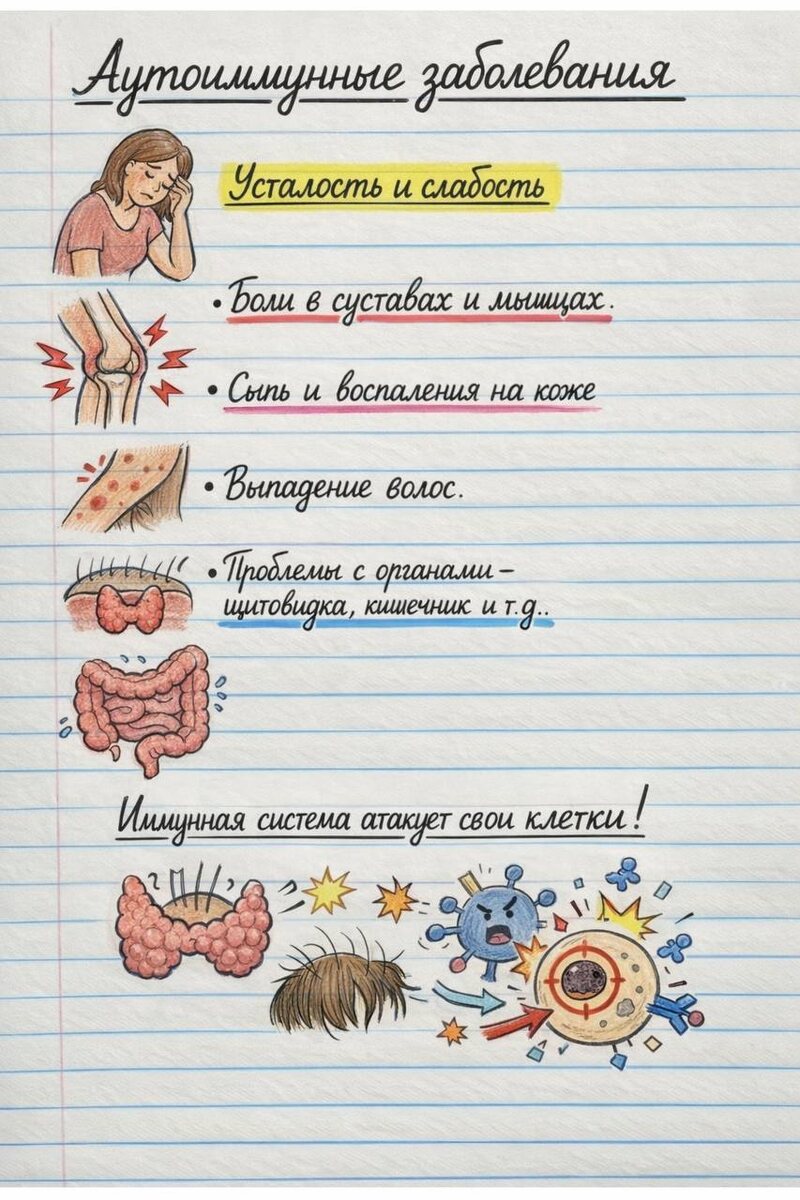 Аутоиммунные заболевания
Усталость и слабость
• Боли в суставах и мышцах.
• Сыпь и воспаления на коже
• Выпадение волос.
• Проблемы с органами –
щитовидка, кишечник и т.д..
Иммунная система атакует свои клетки!